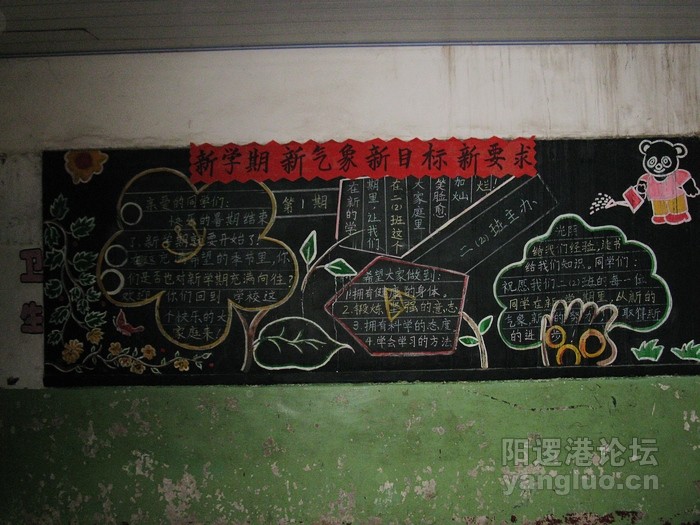 新学期 新气象 新目标 新要求
亲爱的同学们:
快乐的暑期结束
了!新的学期就要开始了!
在这充满希望的季节里,你
们是否也对新学期充满向往?
欢迎你们回到学校这
个快乐的大
家庭来!
第1期
在新的学
期里,让我们
在二(2)班这个
大家庭里
笑脸愈
加灿
烂!
二(2)班主办
希望大家做到:
1.拥有健康的身体。
2.锻炼坚强的意志
3.拥有科学的态度
4.学会学习的方法
光阴
给我们经验,读书
给我们知识。同学们:
祝愿我们二(2)班的每一位
同学在新的学期里,从新的
气象,新的
的进步
取得新
卫生
阳逻港论坛
yangluo.cn